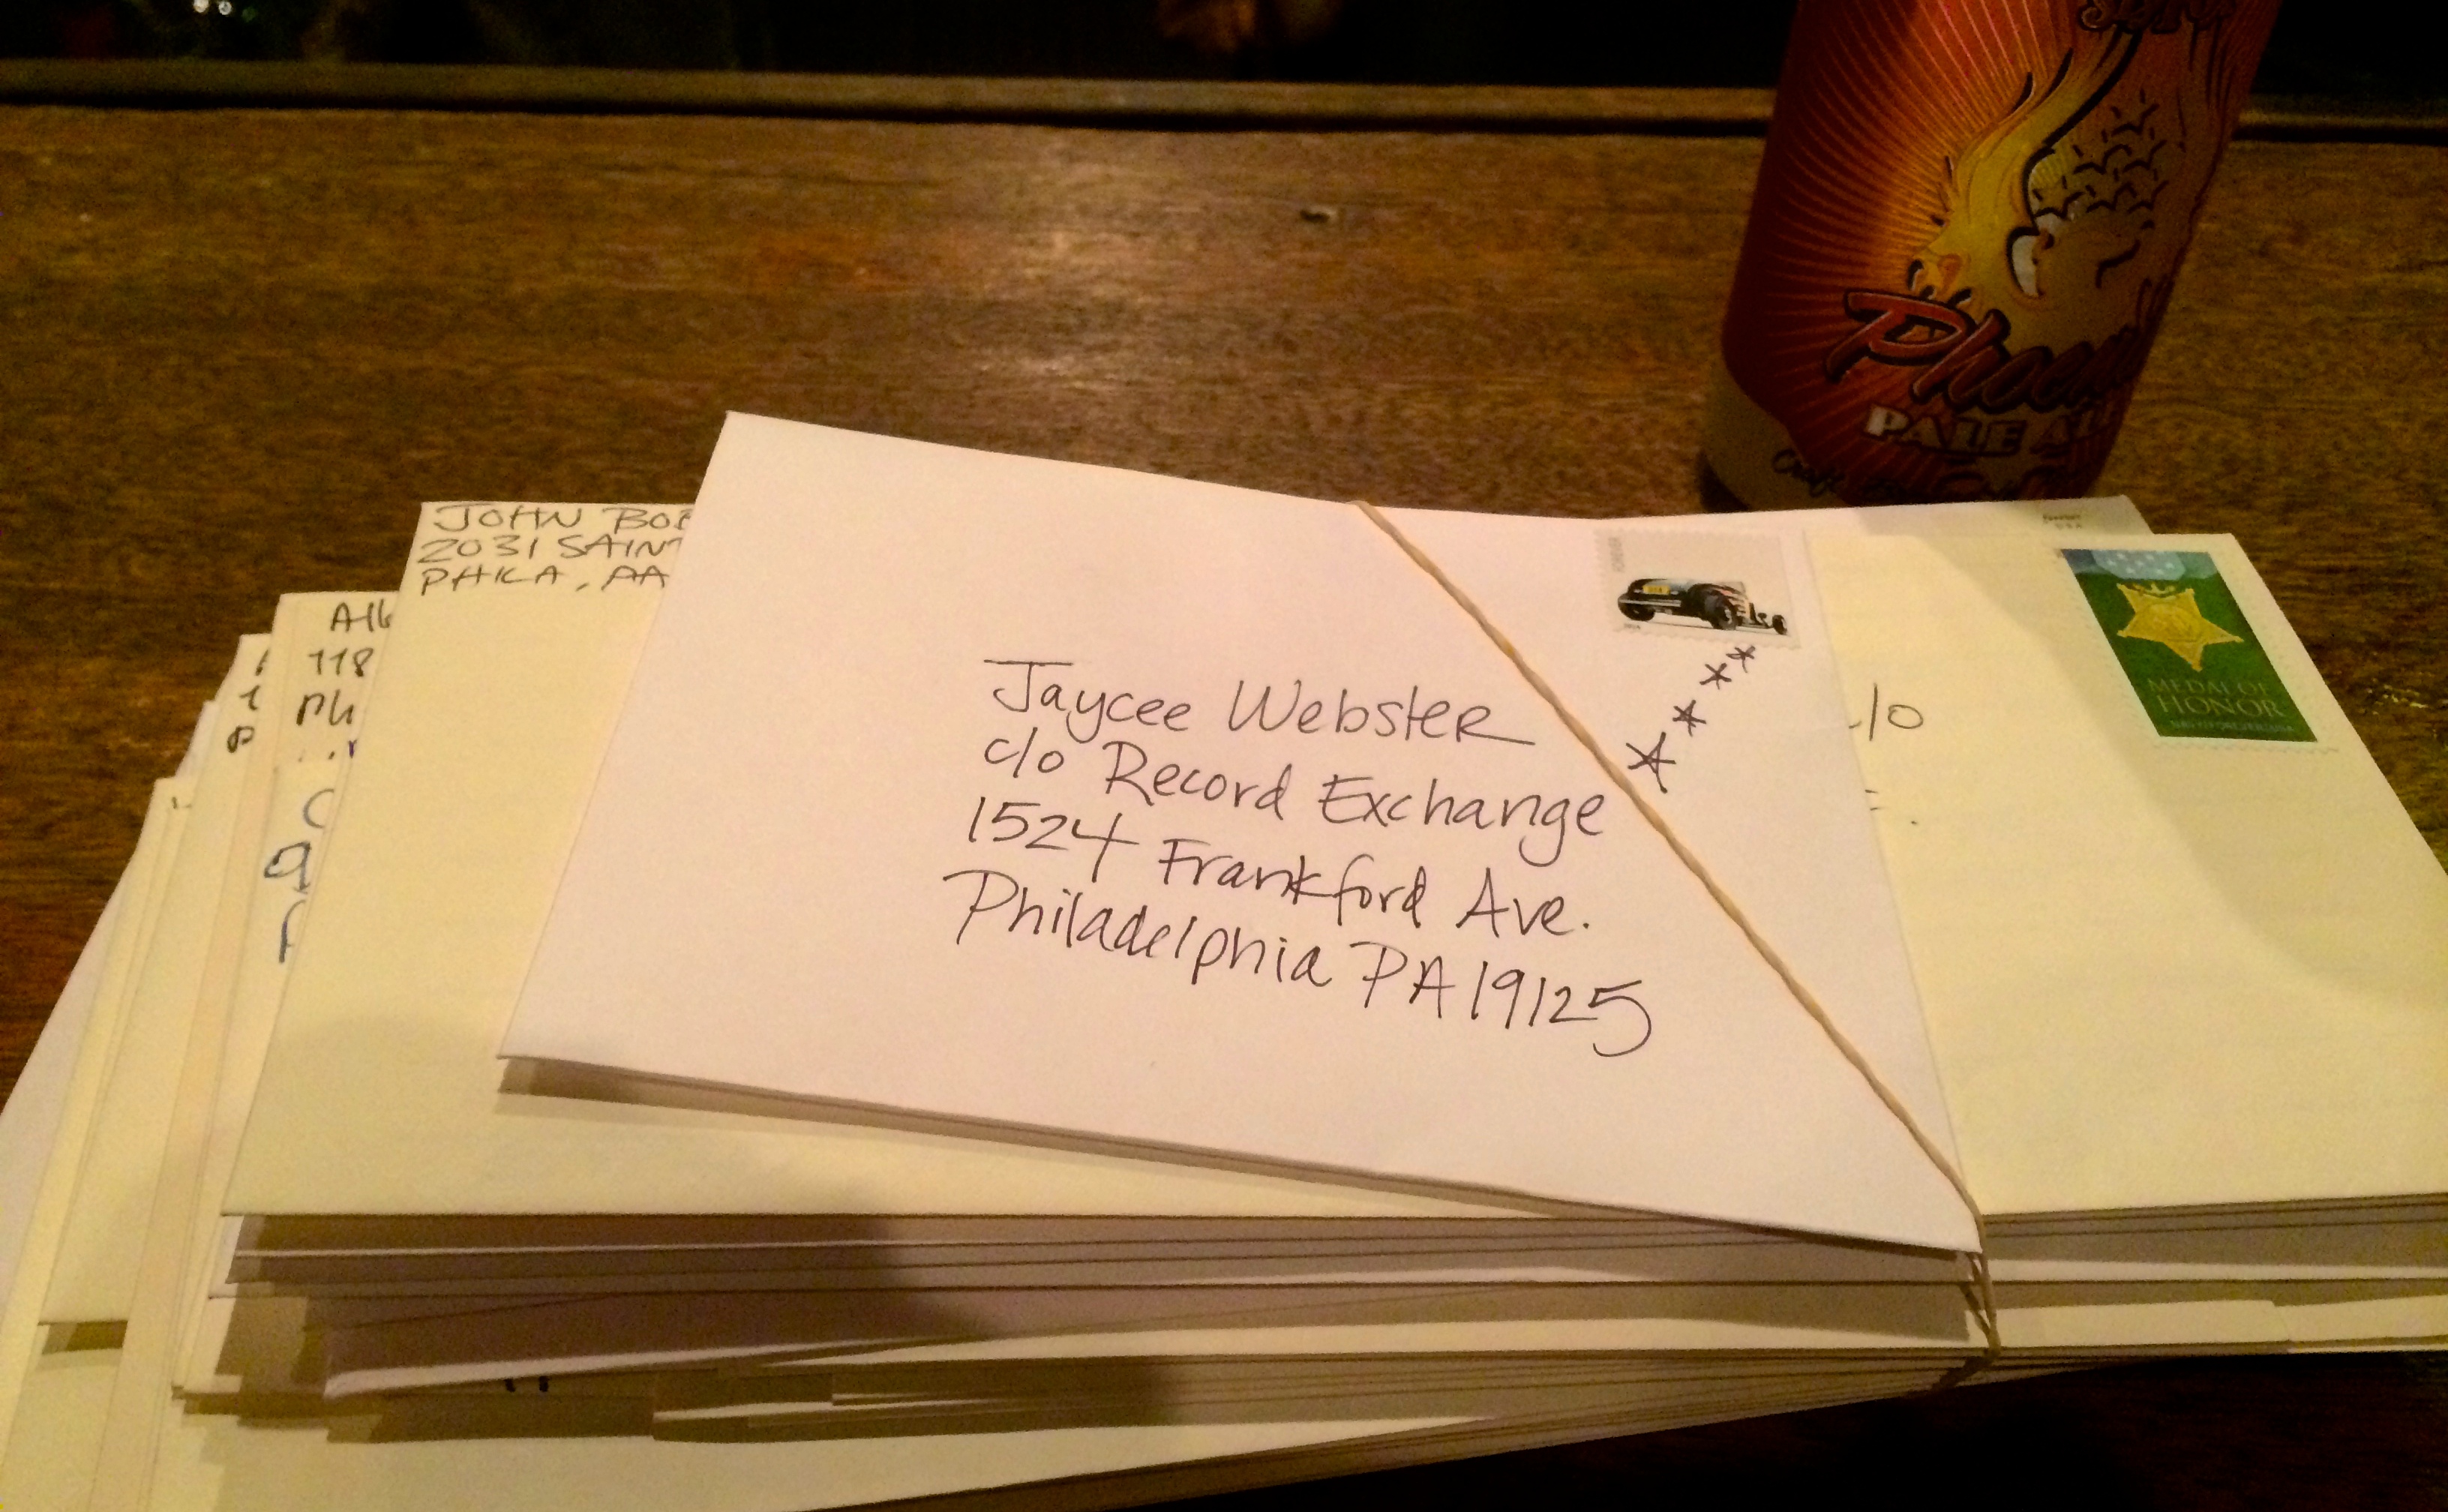 Phoenix
PALE ALE
Craft
JOHN BOB
2031 SAINT
PHILA, PA
Alb
118
Ph
FOREVER
Jaycee Webster
c/o Record Exchange
1524 Frankford Ave.
Philadelphia PA 19125
c/o
MEDAL OF
HONOR